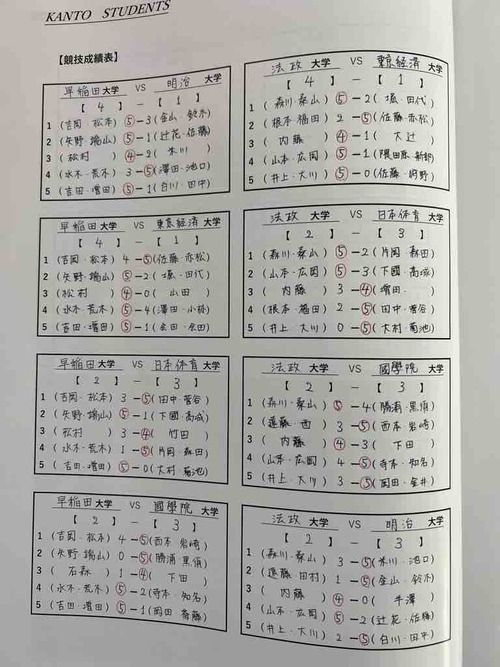 KANTO STUDENTS
【競技成績表】
早稲田大学 VS 明治 大学
【 4 】 − 【 1 】
1 (吉岡・松本) ⑤−3 (金山・鈴木)
2 (矢野・端山) ⑤−1 (辻花・佐藤)
3 (松村 ) ④−2 (米川 )
4 (水木・荒木) 3−⑤ (澤田・池口)
5 (吉田・増田) ⑤−1 (白川・田中)
早稲田大学 VS 東京経済大学
【 4 】 − 【 1 】
1 (吉岡・松本) 4−⑤ (佐藤・赤松)
2 (矢野・端山) ⑤−2 (堀・田代)
3 (松村 ) ④−0 (山田 )
4 (水木・荒木) ⑤−4 (澤田・小林)
5 (吉田・増田) ⑤−1
早稲田大学 VS 日本体育大学
【 2 】 − 【 3 】
1 (吉岡・松本) 3−⑤ (田中・菅谷)
2 (矢野・端山) ⑤−1 (下國・高成)
3 (松村 ) 3−④ (竹田 )
4 (水木・荒木) 1−⑤ (片岡・森田)
5 (吉田・増田) ⑤−0 (大村・菊池)
早稲田大学 VS 國學院 大学
【 2 】 − 【 3 】
1 (吉岡・松本) 4−⑤ (西本・岩崎)
2 (矢野・端山) 0−⑤ (勝浦・黒須)
3 (石森 ) 1−④ (下田 )
4 (水木・荒木) ⑤−2 (寺本・知名)
5 (吉田・増田) ⑤−1 (岡田・斎藤)
法政 大学 VS 東京経済 大学
【 4 】 − 【 1 】
1 (森川・桑山) ⑤−2 (堀・田代)
2 (根本・福田) 2−⑤ (佐藤・赤松)
3 (内藤 ) ④−1 (大辻 )
4 (山本・広岡) ⑤−1
5 (井上・大川) ⑤−0
法政 大学 VS 日本体育 大学
【 2 】 − 【 3 】
1 (森川・桑山) ⑤−2 (片岡・森田)
2 (山本・広岡) ⑤−3 (下國・高成)
3 (内藤 ) 3−④
4 (根本・福田) 2−⑤ (田中・菅谷)
5 (井上・大川) 0−⑤ (大村・菊池)
法政 大学 VS 國學院 大学
【 2 】 − 【 3 】
1 (森川・桑山) ⑤−4 (勝浦・黒須)
2 (遠藤・西) 3−⑤ (西本・岩崎)
3 (内藤 ) ④−3 (下田 )
4 (山本・広岡) 4−⑤ (寺本・知名)
5 (井上・大川) 3−⑤ (岡田・金井)
法政 大学 VS 明治 大学
【 2 】 − 【 3 】
1 (森川・桑山) 3−⑤ (米川・池口)
2 (遠藤・田村) 1−⑤ (金山・鈴木)
3 (内藤 ) ④−0 (牛澤 )
4 (山本・広岡) ⑤−2 (辻花・佐藤)
5 (井上・大川) 2−⑤ (白川・田中)